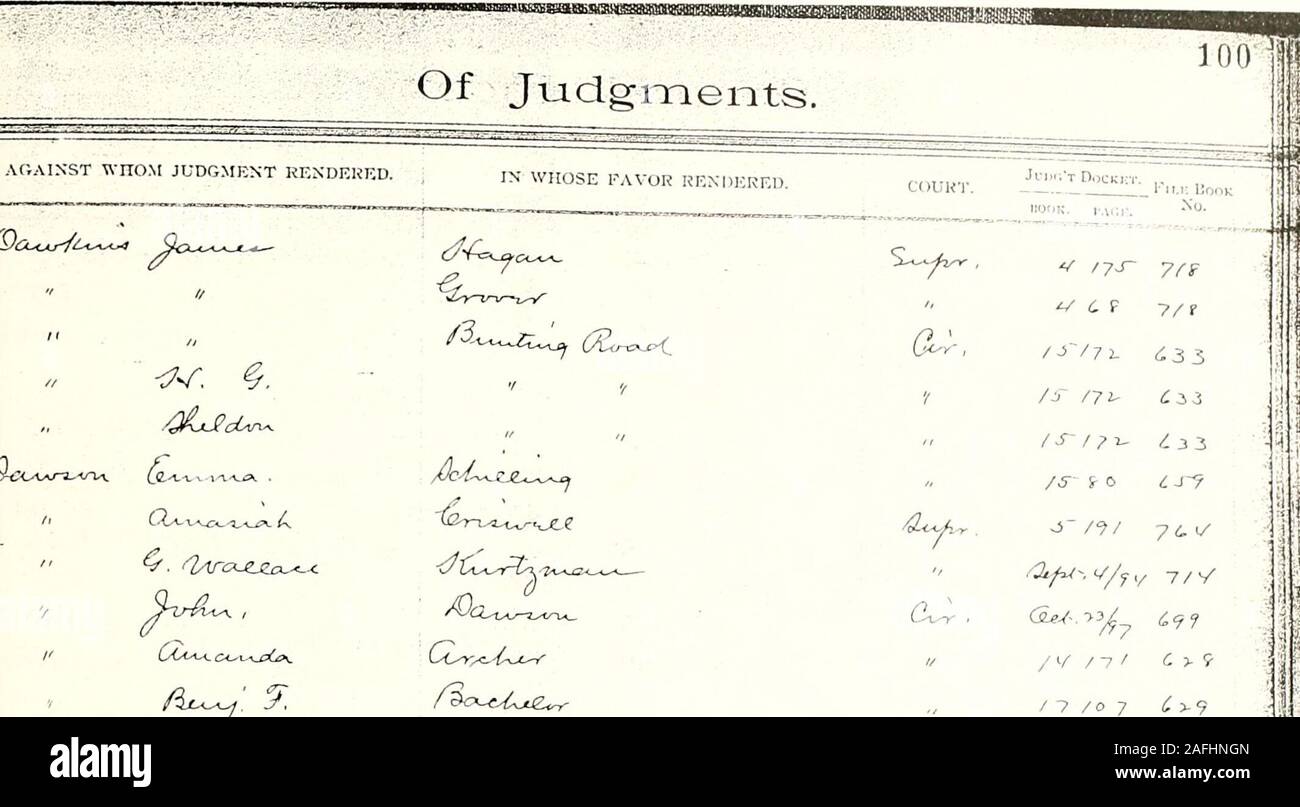 100
Of Judgments.
AGAINST WHOM JUDGMENT RENDERED. IN WHOSE FAVOR RENDERED. COURT. JUDG'T DOCKET. FILE BOOK
BOOK. PAGE. No.
Dawkins James Hagan Supr. 4 175 718
" " Grover " 4 68 718
" " Bunting Road Cir. 15 172 633
" H. G. " " " 15 172 633
" Sheldon " " " 15 172 633
Dawson Emma. Schilling " 15 80 659
" Amasiah Criswell Supr. 5 191 764
" G. Wallace Kurtzman " Sept. 4/94 714
" John, Dawson Cir. Oct. 23/97 699
" Amanda Archer " 14 171 628
" Benj. F. Bachelor " 17 107 629
alamy
Image ID: 2AFHNGN
www.alamy.com